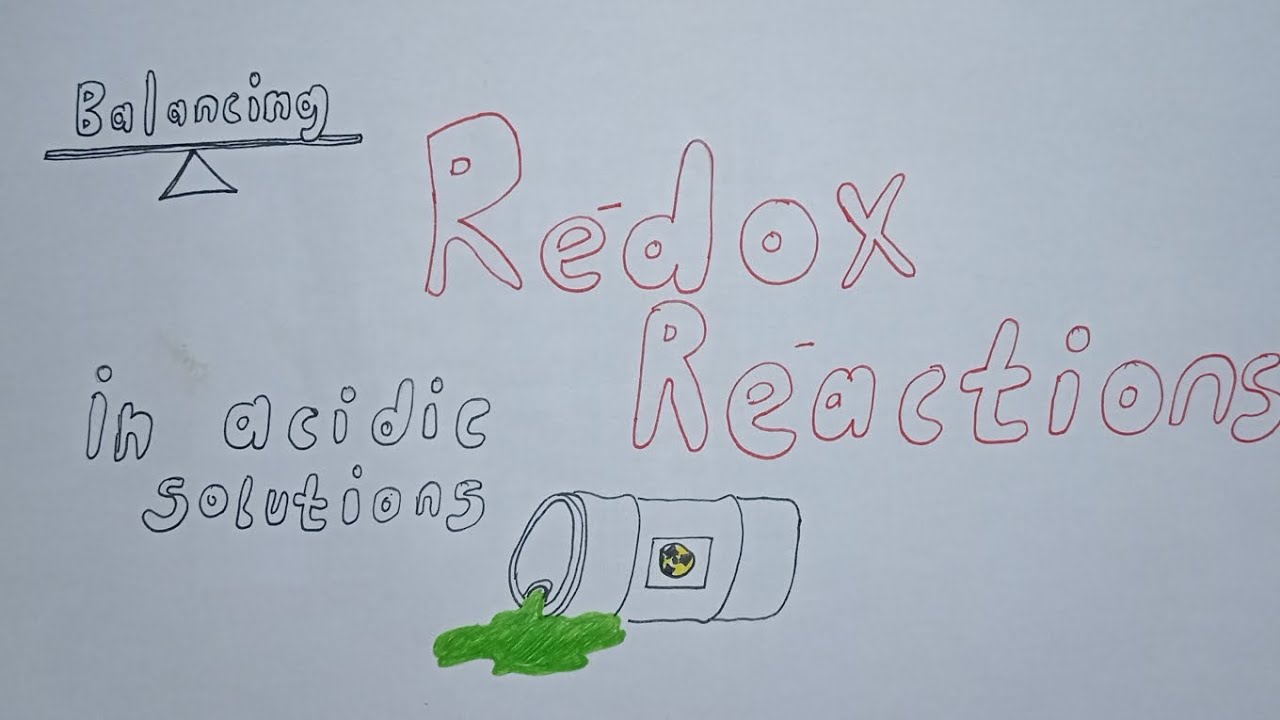 Balancing
Redox
Reactions
in acidic
solutions